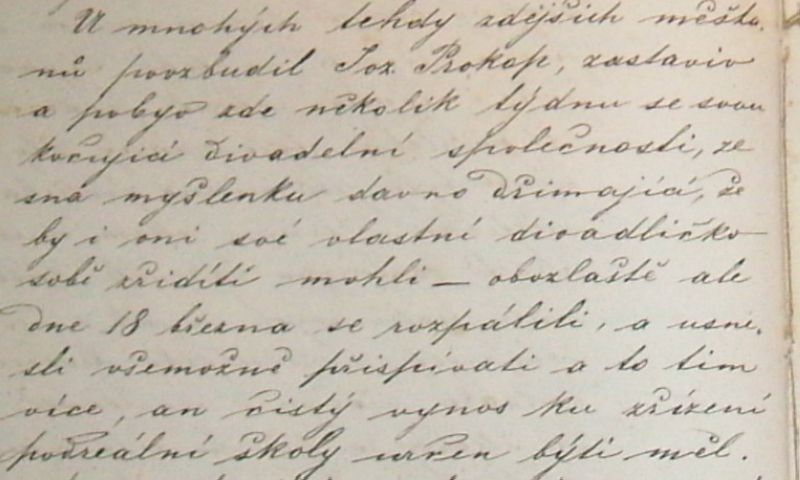 U mnohých tehdy zdějších měšťa-
nů povzbudil Joz. Prokop, zastaviv
a pobyv zde několik týdnu se svou
kočující divadelní společnosti, ze
sna myšlenku davno dřimající, že
by i oni své vlastní divadlíčko
sobě zřidíti mohli — obozlaště ale
dne 18 března se rozpálili, a usne-
sli všemožně přispívati a to tim
více, an čistý vynos ku zřízení
podreální školy určen býti měl.